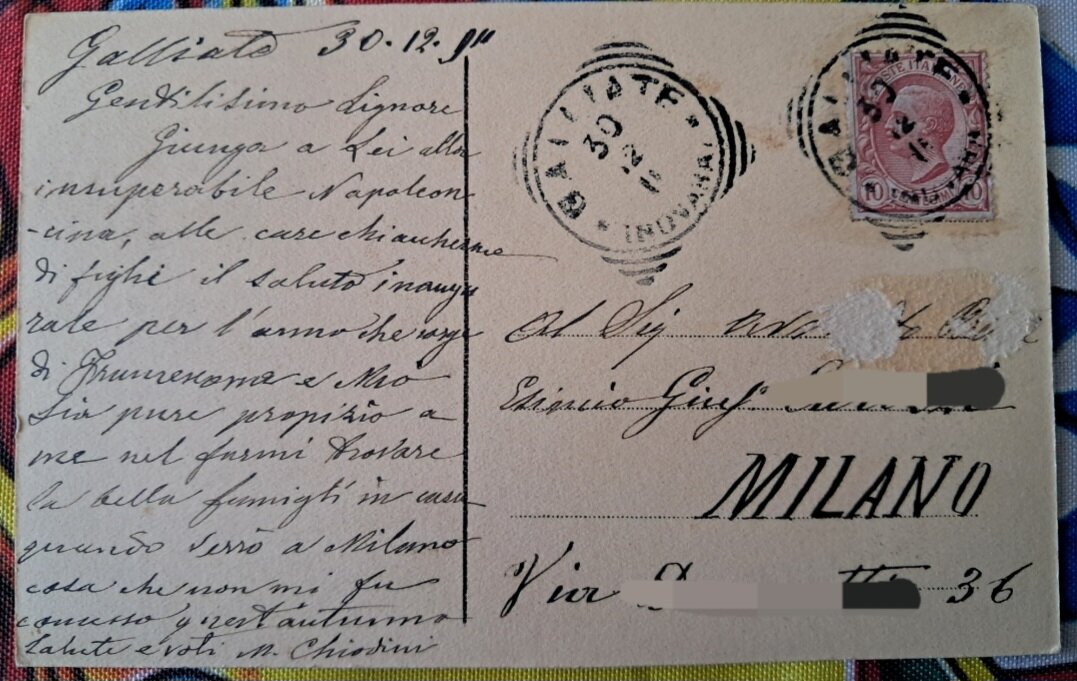 Galliate 30.12.911
Gentilisimo Signore
Giunga a Lei alla
insuperabile Napoleon
-cina, alle care
di fighi il saluto inaugu
rale per l'anno che sorge
di e Mio
Sia pure propizio a
me nel farmi trovare
la bella famigli in casa
quando verrò a Milano
cosa che non mi fu
concesso quest'autunno
Salute e voti M. Chiodini
GALLIATE
30
12
11
(NOVARA)
GALLIATE
30
12
11
(NOVARA)
POSTE ITALIANE
10 CENTESIMI 10
Al Sig
Giusȩ.
MILANO
Via 36